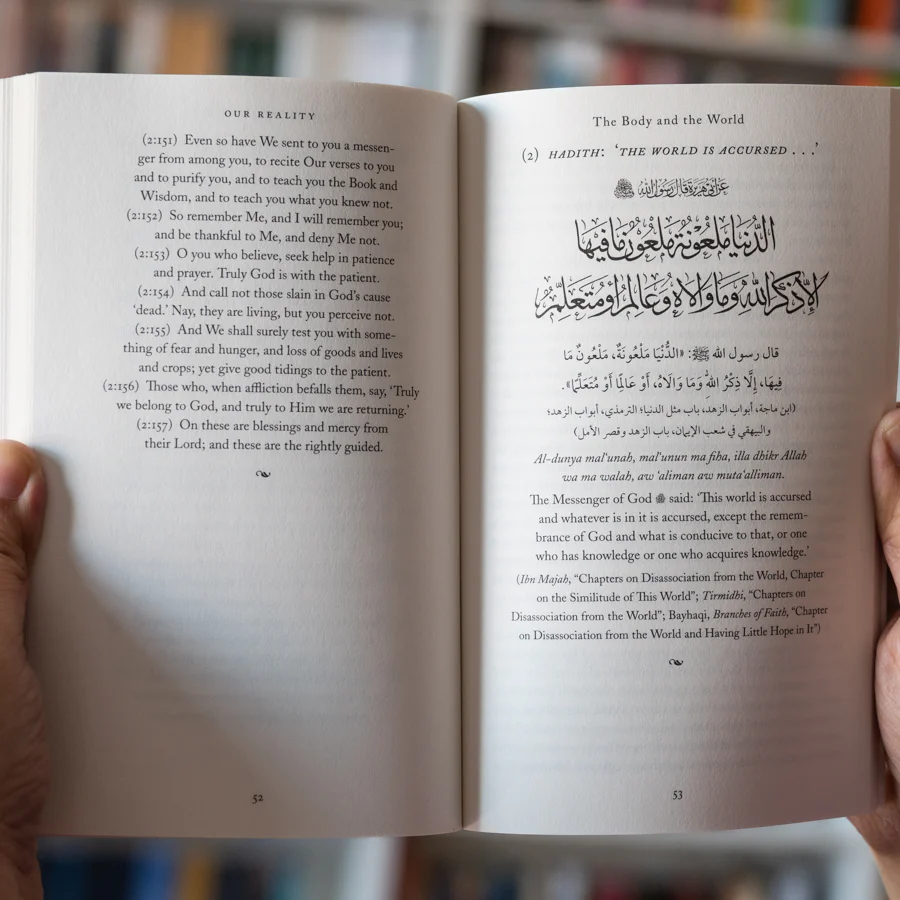 OUR REALITY
(2:151) Even so have We sent to you a messen-
ger from among you, to recite Our verses to you
and to purify you, and to teach you the Book and
Wisdom, and to teach you what you knew not.
(2:152) So remember Me, and I will remember you;
and be thankful to Me, and deny Me not.
(2:153) O you who believe, seek help in patience
and prayer. Truly God is with the patient.
(2:154) And call not those slain in God's cause
'dead.' Nay, they are living, but you perceive not.
(2:155) And We shall surely test you with some-
thing of fear and hunger, and loss of goods and lives
and crops; yet give good tidings to the patient.
(2:156) Those who, when affliction befalls them, say, 'Truly
we belong to God, and truly to Him we are returning.'
(2:157) On these are blessings and mercy from
their Lord; and these are the rightly guided.
52
The Body and the World
(2) HADITH: 'THE WORLD IS ACCURSED . . .'
عن أبي هريرة قال رسول الله ﷺ
الدُّنْيَا مَلْعُونَةٌ مَلْعُونٌ مَا فِيهَا
إِلَّا ذِكْرُ اللهِ وَمَا وَالَاهُ وَعَالِمٌ أَوْ مُتَعَلِّمٌ
قال رسول الله ﷺ: «الدُّنْيَا مَلْعُونَةٌ، مَلْعُونٌ مَا
فِيهَا، إِلَّا ذِكْرُ اللهِ وَمَا وَالَاهُ، أَوْ عَالِمًا أَوْ مُتَعَلِّمًا».
(ابن ماجة، أبواب الزهد، باب مثل الدنيا؛ الترمذي، أبواب الزهد؛
والبيهقي في شعب الإيمان، باب الزهد وقصر الأمل)
Al-dunya mal'unah, mal'unun ma fiha, illa dhikr Allah
wa ma walah, aw 'aliman aw muta'alliman.
The Messenger of God ﷺ said: 'This world is accursed
and whatever is in it is accursed, except the remem-
brance of God and what is conducive to that, or one
who has knowledge or one who acquires knowledge.'
(Ibn Majah, "Chapters on Disassociation from the World, Chapter
on the Similitude of This World"; Tirmidhi, "Chapters on
Disassociation from the World"; Bayhaqi, Branches of Faith, "Chapter
on Disassociation from the World and Having Little Hope in It")
53